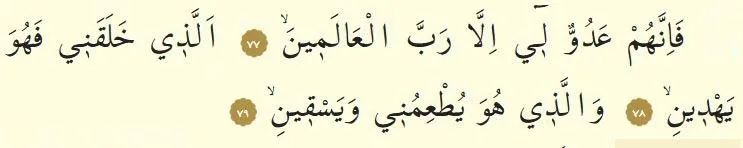 فَاِنَّهُمْ عَدُوٌّ لٖٓي اِلَّا رَبَّ الْعَالَمٖينَۙ ﴿٧٧﴾ اَلَّذٖي خَلَقَنٖي فَهُوَ
يَهْدٖينِۙ ﴿٧٨﴾ وَالَّذٖي هُوَ يُطْعِمُنٖي وَيَسْقٖينِۙ ﴿٧٩﴾